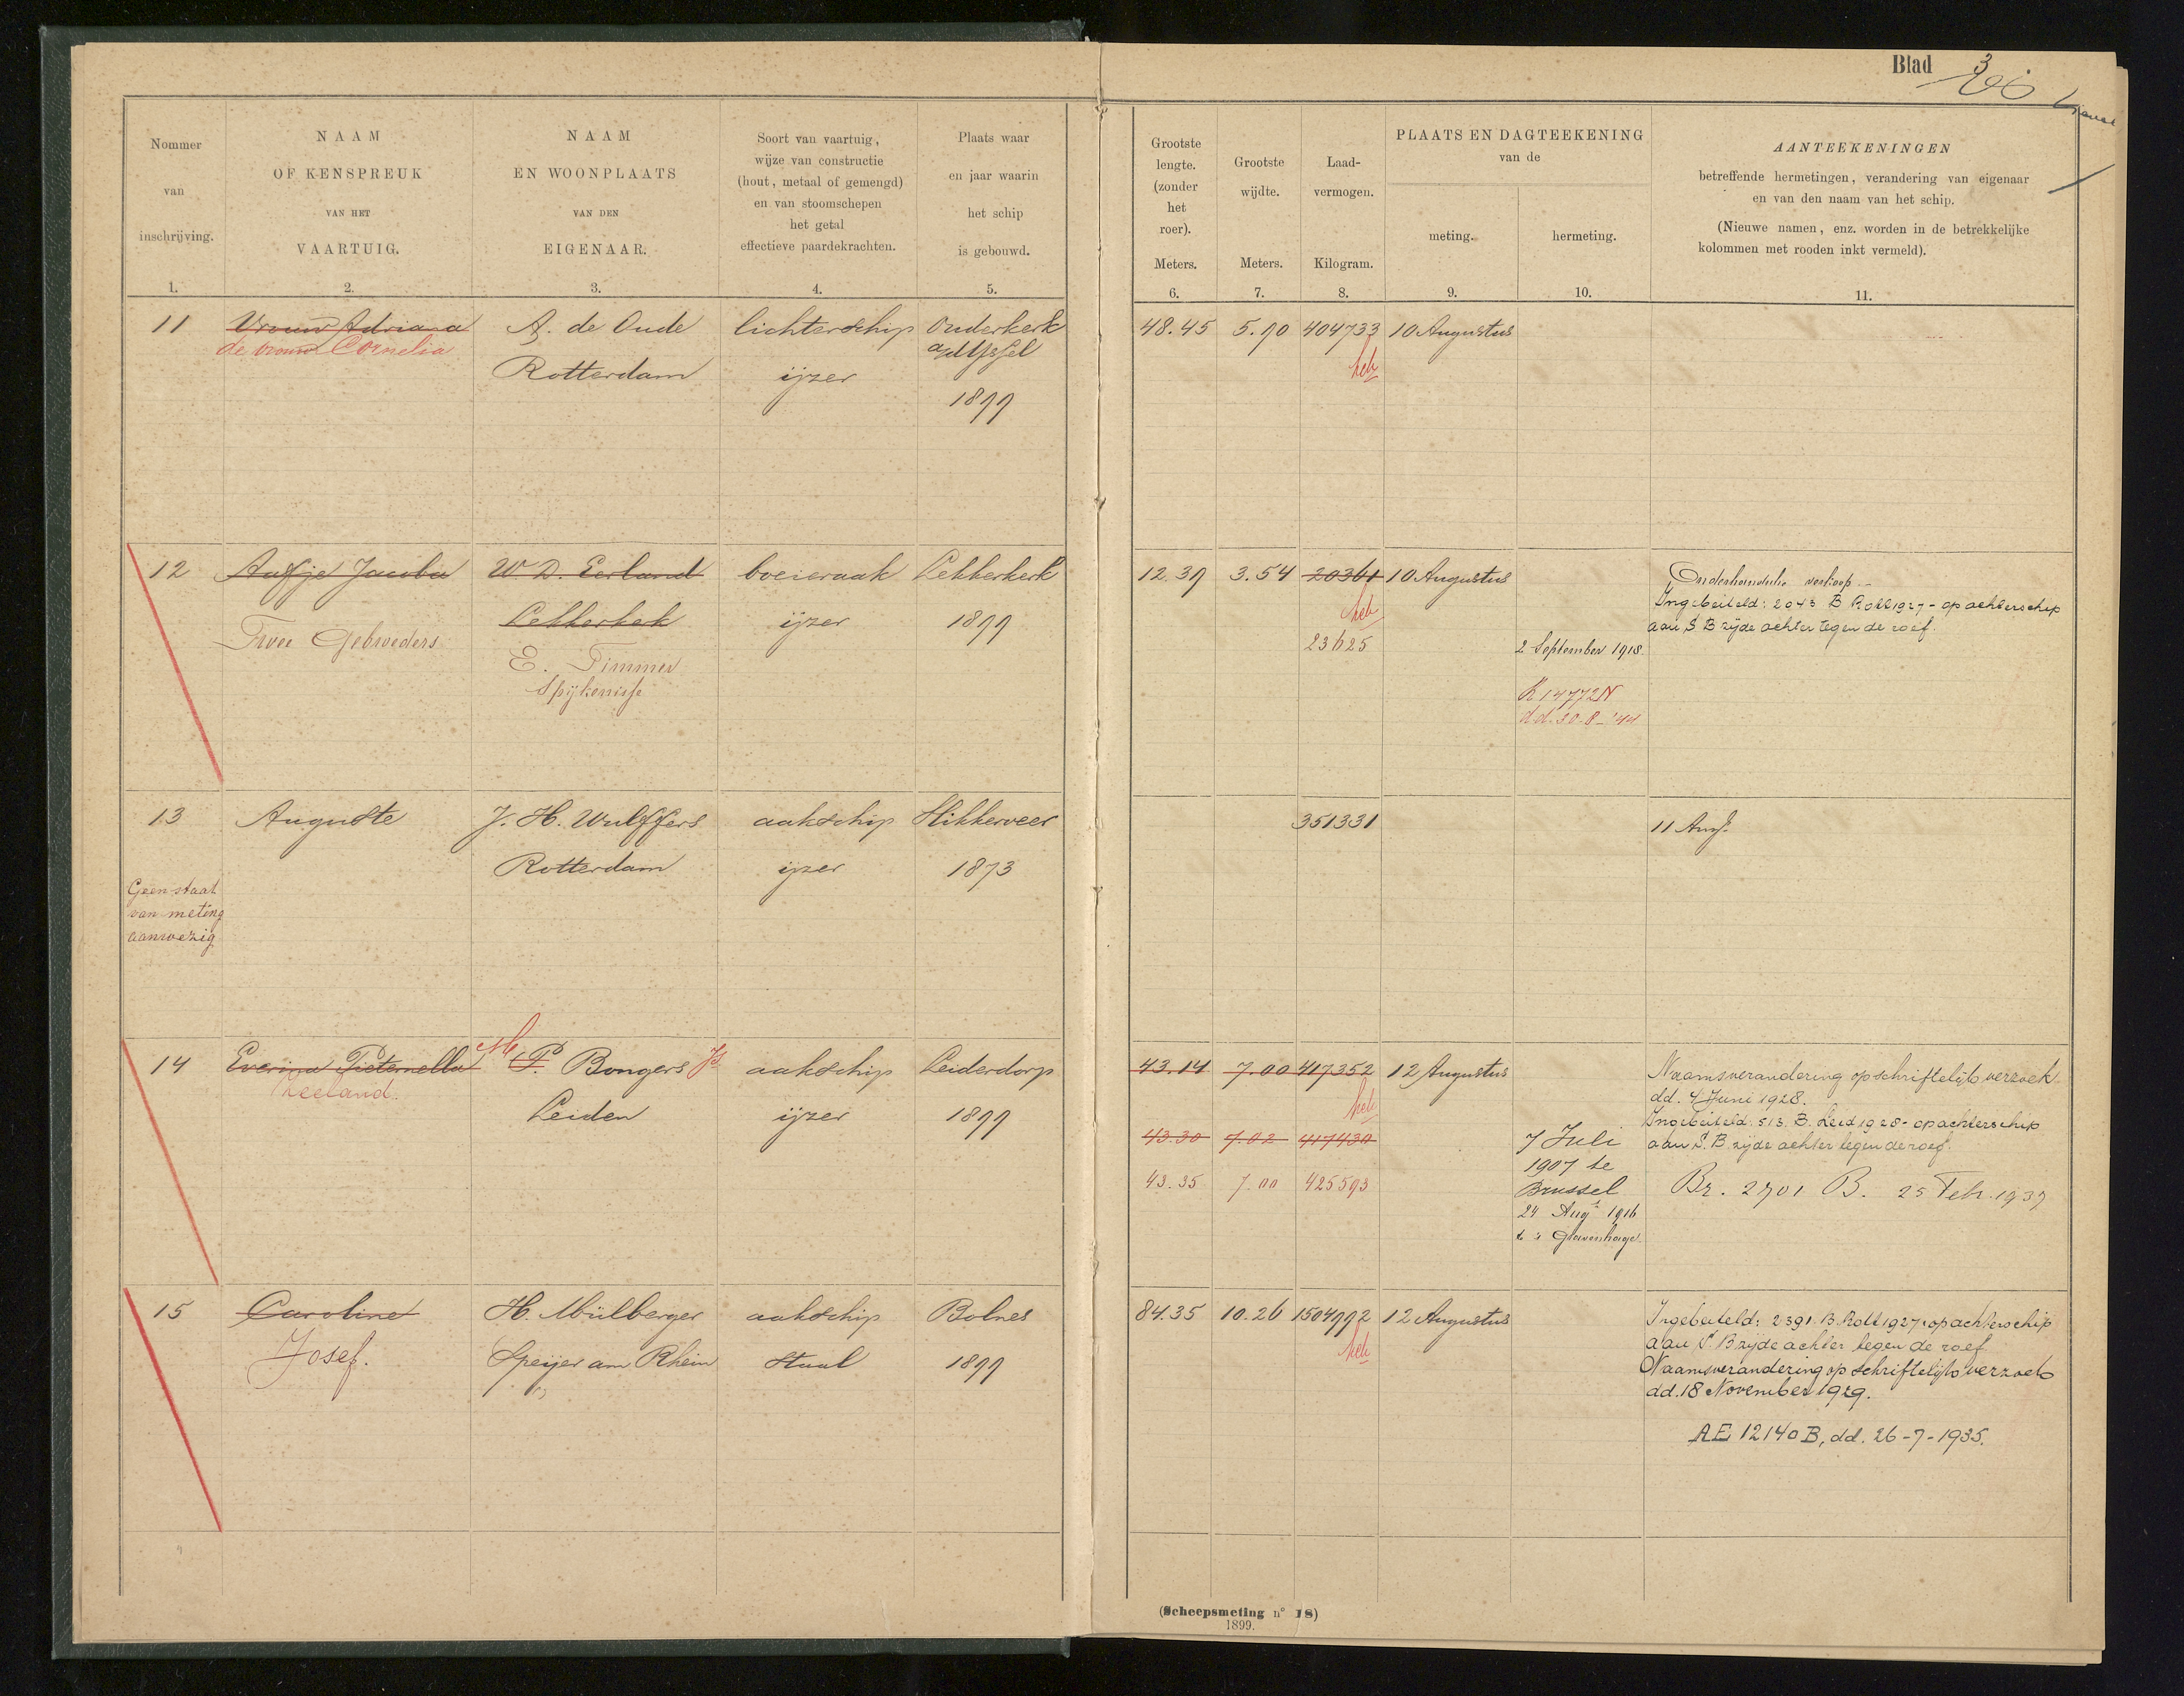 Blad 3
Nommer
van
inschrijving.
1.
NAAM
OF KENSPREUK
VAN HET
VAARTUIG.
2.
NAAM
EN WOONPLAATS
VAN DEN
EIGENAAR.
3.
Soort van vaartuig,
wijze van constructie
(hout, metaal of gemengd)
en van stoomschepen
het getal
effectieve paardekrachten.
4.
Plaats waar
en jaar waarin
het schip
is gebouwd.
5.
Grootste
lengte.
(zonder
het
roer).
Meters.
6.
Grootste
wijdte.
Meters.
7.
Laad-
vermogen.
Kilogram.
8.
PLAATS EN DAGTEEKENING
van de
meting.
9.
hermeting.
10.
AANTEEKENINGEN
betreffende hermetingen, verandering van eigenaar
en van den naam van het schip.
(Nieuwe namen, enz. worden in de betrekkelijke
kolommen met rooden inkt vermeld).
11.
11 Vrouw Adriana A. de Oude lichterschip Ouderkerk 48.45 5.90 404733 10 Augustus
de vrouw Cornelia a/d IJssel
Rotterdam ijzer
1899
12 Aafje Jacoba W D. Eerland boeieraak Lekkerkerk 12.39 3.54 20361 10 Augustus Onderhandsche verkoop.-
Ingebeiteld: 2043 B Rott 1927 - op achterschip
aan S.B zijde achter tegen de roef.
Twee Gebroeders Lekkerkerk ijzer 1899 23625 2 September 1918.
E. Timmer
Spijkenisse
R 14772 N
d.d. 30-8-'44
13 Auguste J. H. Wulffers aakschip Slikkerveer 351331 11 Aug.
Rotterdam ijzer 1873
Geen staat
van meting
aanwezig
14 Everina Pieternella M P. Bongers Js aakschip Leiderdorp 43.14 7.00 417352 12 Augustus Naamsverandering op schriftelijk verzoek
Zeeland. dd. 4 Juni 1928.
Leiden ijzer 1899 Ingebeiteld: 513. B. Leid 1928 - op achterschip
43.30 7.02 417430 7 Juli aan S.B. zijde achter tegen de roef.
1907 te
43.35 7.00 425593 Brussel Br. 2701 B. 25 Feb. 1937
24 Aug 1916
te 's Gravenhage
15 Caroline H. Mülberger aakschip Bolnes 84.35 10.26 1504992 12 Augustus Ingebeiteld: 2391. B. Rott 1927. op achterschip
aan S.B zijde achter tegen de roef
Josef. Speijer am Rhein staal 1899 Naamsverandering op schriftelijk verzoek
dd. 18 November 1929.
AE 12140 B, dd. 26-7-1935.
(Scheepsmeting n° 18)
1899.